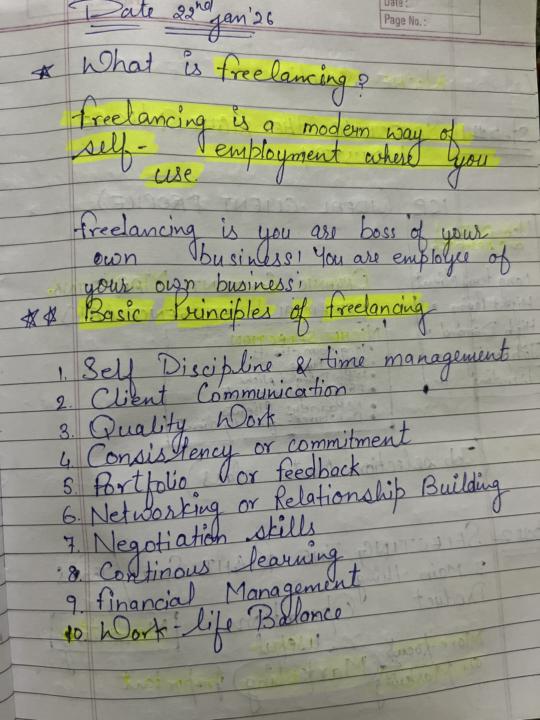 Date:
Page No.:
Date 22nd Jan'26
* What is freelancing?
freelancing is a modern way of
self- employment where you
use
freelancing is you are boss of your
own business! You are employee of
your own business!
** Basic Principles of freelancing
1. Self Discipline & time management
2. Client Communication
3. Quality Work
4. Consistency or commitment
5. Portfolio or feedback
6. Networking or Relationship Building
7. Negotiation skills
8. Continous learning
9. financial Management
10. Work-life Balance